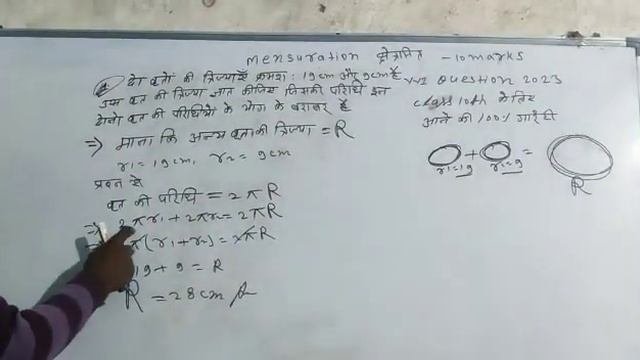 mensuration क्षेत्रमिति - 10 marks
दो वृतों की त्रिज्याएँ क्रमश: 19cm और 9cm है
उस वृत की त्रिज्या ज्ञात कीजिए जिसकी परिधि इन
दोनों वृत की परिधियों के योग के बराबर है
VVI Question 2023
class 10th के लिए
आने की 100% गारंटी
⇒ माना कि अन्य वृत की त्रिज्या = R
r1 = 19cm, r2 = 9cm
प्रश्न से
वृत की परिधि = 2πR
⇒ 2πr1 + 2πr2 = 2πR
π(r1+r2) = 2πR
19 + 9 = R
R = 28 cm
+ =
r1=19 r2=9
R